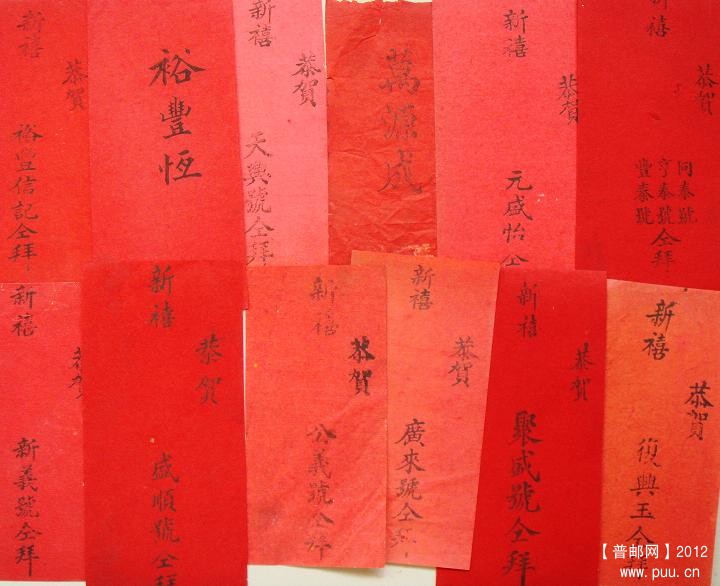 恭賀
新禧
裕豐信記仝拜
裕豐恆
恭賀
新禧
天興號仝拜
萬源成
恭賀
新禧
元盛怡仝
恭賀
新禧
同泰號
亨泰號
豐泰號
仝拜
恭賀
新禧
新義號仝拜
恭賀
新禧
盛順號仝拜
恭賀
新禧
公義號仝拜
恭賀
新禧
廣來號仝拜
恭賀
新禧
聚盛號仝拜
恭賀
新禧
復興玉仝拜
【普邮网】2012
www.puu.cn